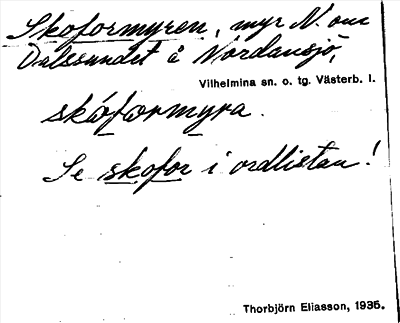 Skoformyren, myr N. om
Dalssundet å Nordansjö,
Vilhelmina sn. o. tg. Västerb. l.
skóformyra.
Se skofor i ordlistan!
Thorbjörn Eliasson, 1935.